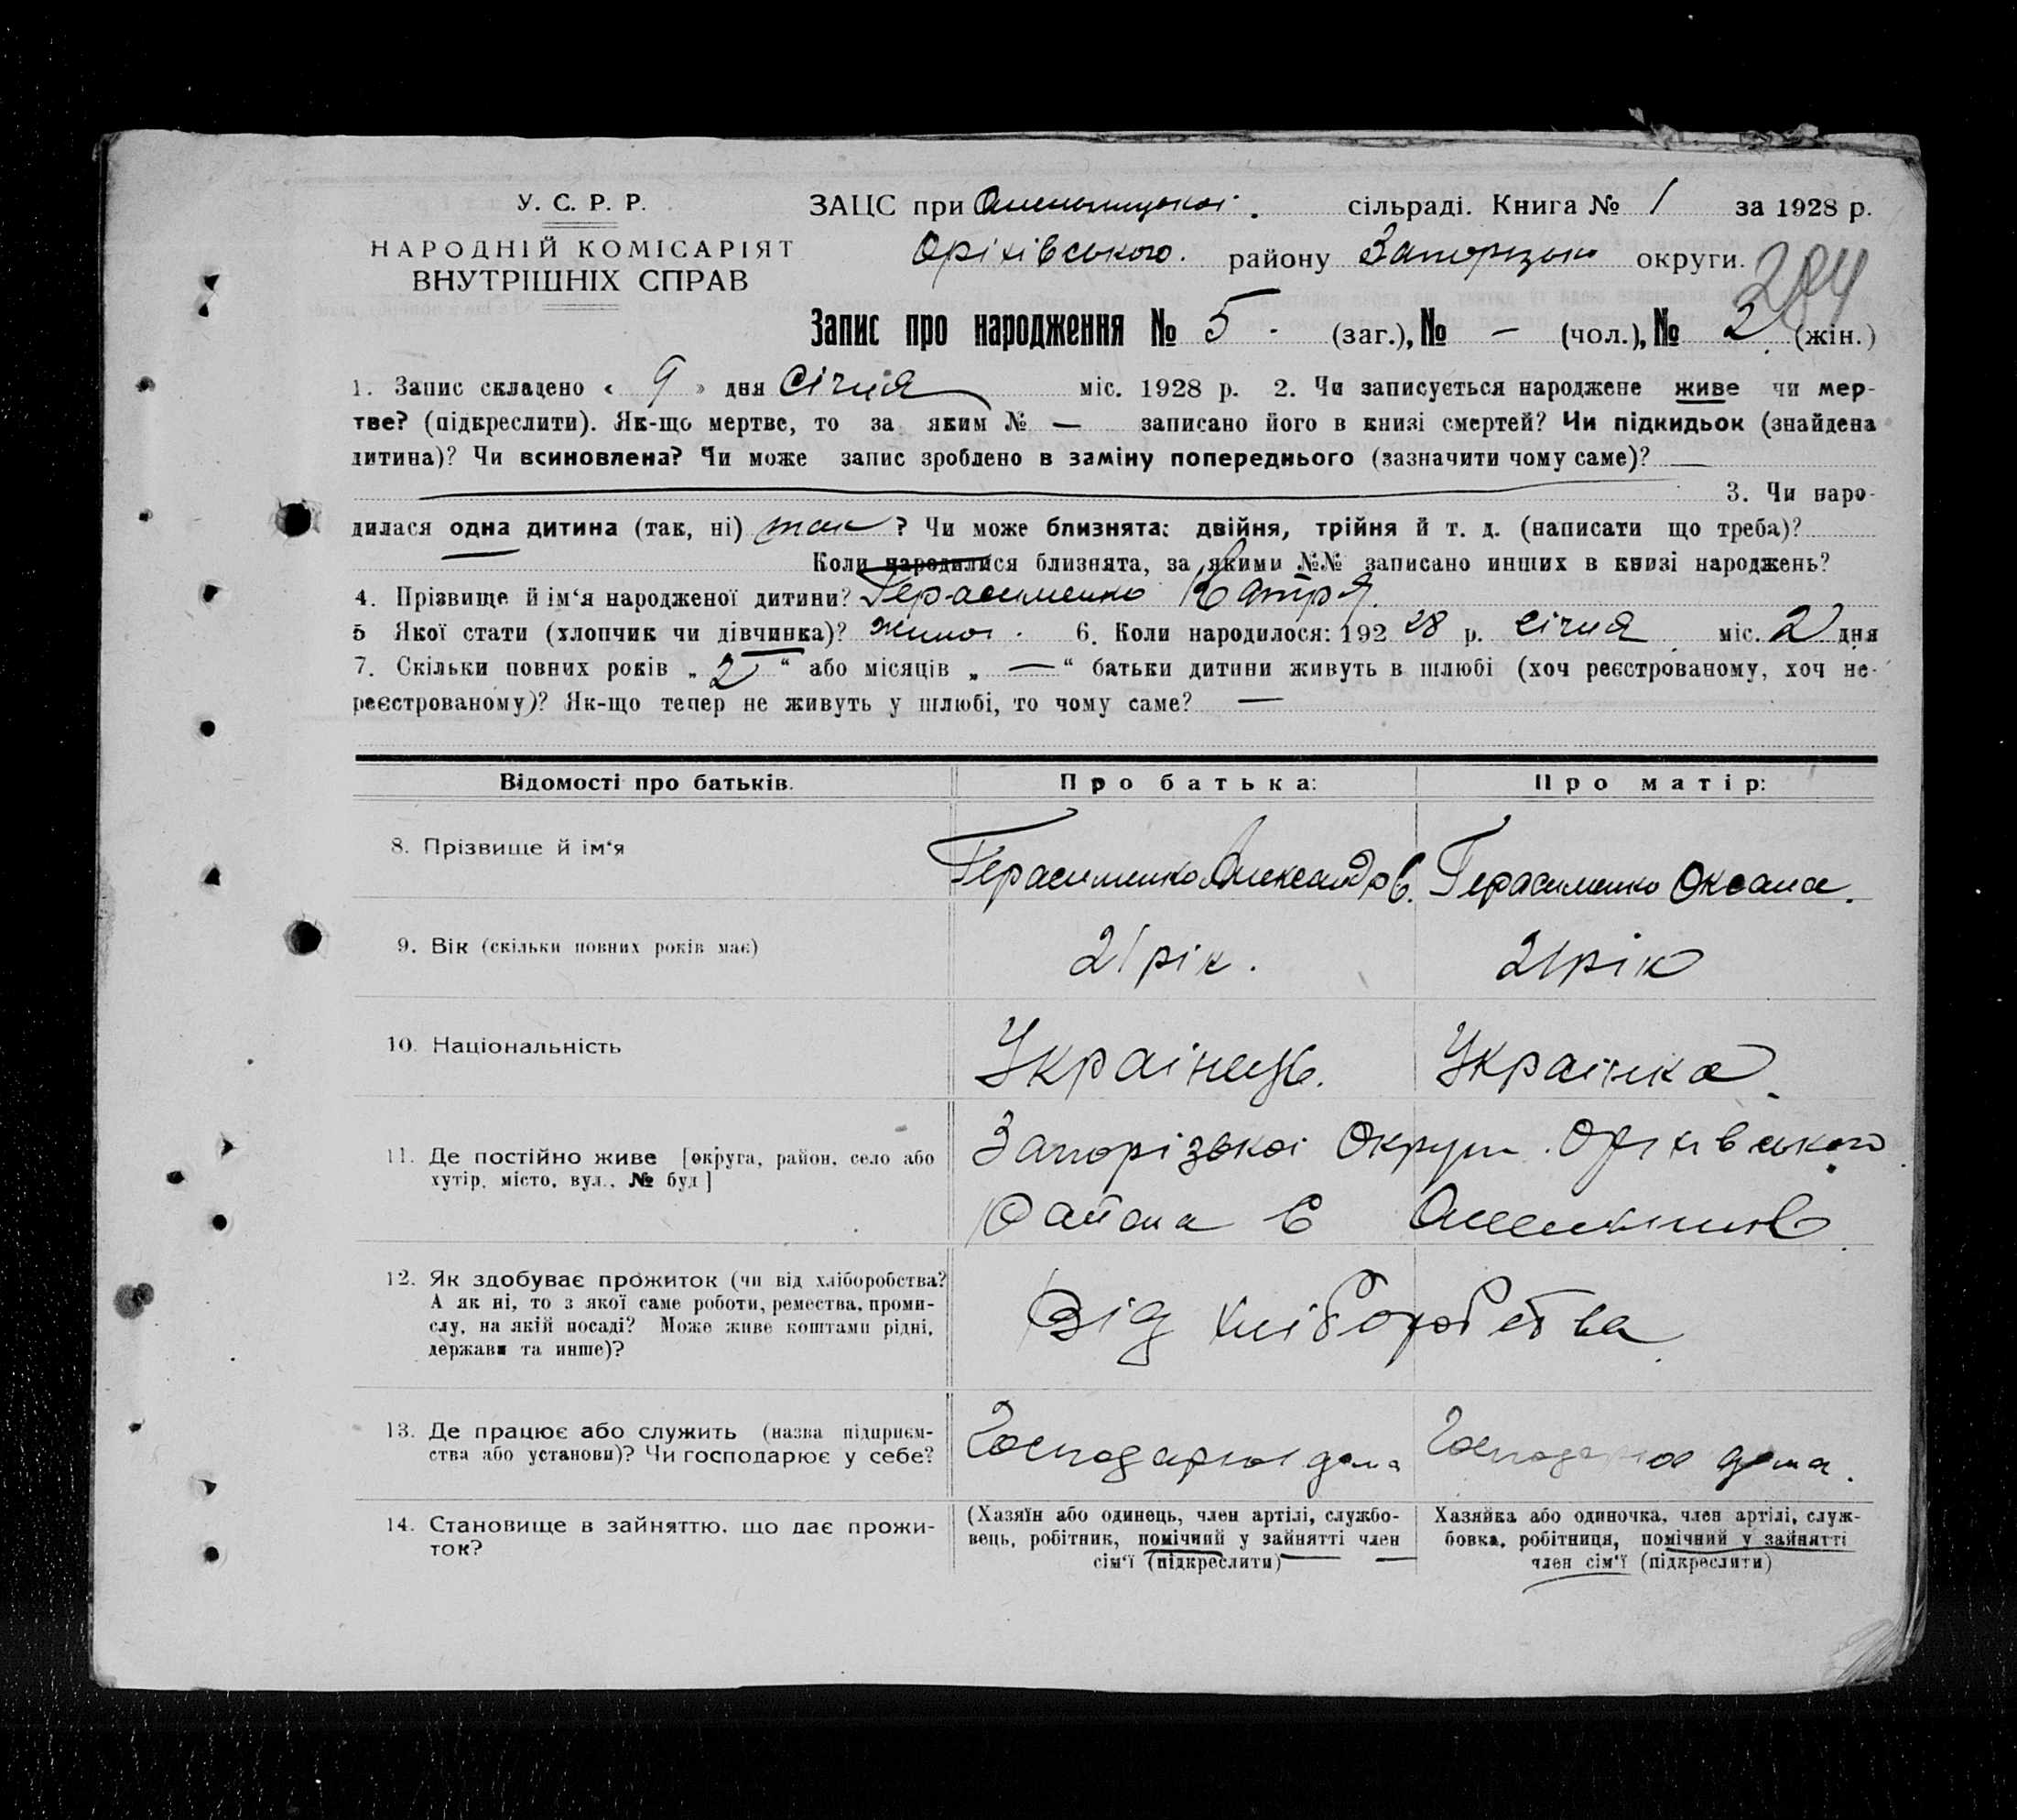 У. С. Р. Р.
НАРОДНІЙ КОМІСАРІЯТ
ВНУТРІШНІХ СПРАВ
ЗАЦС при Омельницькоі. сільраді. Книга № 1 за 1928 р.
Оріхівського. району Запорізько округи.
204
Запис про народження № 5 (заг.), № — (чол.), № 2 (жін.)
1. Запис складено « 9 » дня Січня міс. 1928 р. 2. Чи записується народжене живе чи мер-
тве? (підкреслити). Як-що мертве, то за яким № — записано його в книзі смертей? Чи підкидьок (знайдена
дитина)? Чи всиновлена? Чи може запис зроблено в заміну попереднього (зазначити чому саме)? —
3. Чи наро-
дилася одна дитина (так, ні) так ? Чи може близнята: двійня, трійня й т. д. (написати що треба)?
Коли народилися близнята, за якими №№ записано инших в книзі народжень?
4. Прізвище й ім‘я народженої дитини? Герасименко Катря.
5 Якої стати (хлопчик чи дівчинка)? жіноч. 6. Коли народилося: 192 28 р. січня міс. 2 дня
7. Скільки повних років „ 2 “ або місяців „ — “ батьки дитини живуть в шлюбі (хоч реєстрованому, хоч не-
реєстрованому)? Як-що тепер не живуть у шлюбі, то чому саме? —
Відомості про батьків.
Про батька:
Про матір:
8. Прізвище й ім‘я
Герасименко Александрь.
Герасименко Оксана.
9. Вік (скільки повних років має)
21 рік.
21 рік
10. Національність
Украінець.
Украінка.
11. Де постійно живе [округа, район, село або
хутір, місто, вул., № буд]
Запорізькоі Округи. Оріхівського
Району С Омельник
12. Як здобуває прожиток (чи від хліборобства?
А як ні, то з якої саме роботи, ремества, проми-
слу, на якій посаді? Може живе коштами рідні,
держави та инше)?
Від хліборобства.
13. Де працює або служить (назва підприєм-
ства або установи)? Чи господарює у себе?
Господарює дома
Господарює дома.
14. Становище в зайняттю, що дає прожи-
ток?
(Хазяїн або одинець, член артілі, службо-
вець, робітник, помічний у зайнятті член
сім‘ї (підкреслити)
Хазяйка або одиночка, член артілі, служ-
бовка, робітниця, помічний у зайнятті
член сім‘ї (підкреслити)